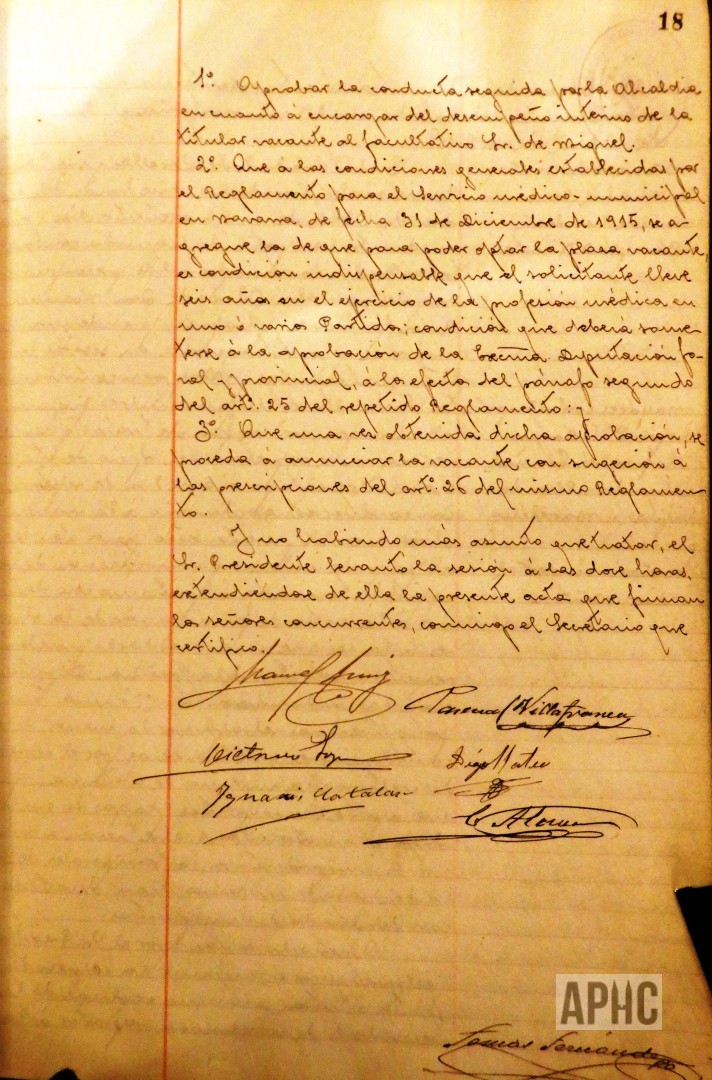 18
1º. Aprobar la conducta seguida por la Alcaldia
en cuanto á encargar del desempeño interino de la
titular vacante al facultativo Sr. de Miguel.
2º. Que á las condiciones generales establecidas por
el Reglamento para el Servicio médico-municipal
en Navarra, de fecha 31 de Diciembre de 1915, se a-
gregue la de que para poder optar la plaza vacante,
es condición indispensable que el solicitante lleve
seis años en el ejercicio de la profesión médica en
uno ó varios Partidos; condición que deberá some-
terse á la aprobación de la Excma Diputación fo-
ral y provincial, á los efectos del párrafo segundo
del artº. 25 del repetido Reglamento: y
3º. Que una vez obtenida dicha aprobación, se
proceda á anunciar la vacante con sugeción á
las prescripciones del artº. 26 del mismo Reglamen-
to.
Y no habiendo más asunto que tratar, el
Sr. Presidente levantó la sesión á las doce horas,
extendiéndose de ella la presente acta que firman
los señores concurrentes, conmigo el Secretario que
certifico.
Villafranca
Ignacio Catalan
APHC
Tomas Fernández